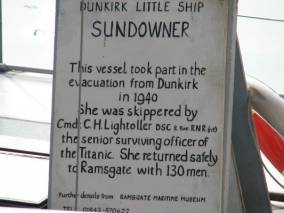 DUNKIRK LITTLE SHIP
SUNDOWNER
This vessel took part in the
evacuation from Dunkirk
in 1940
She was skippered by
Cmdr C.H. Lightoller DSC & Bar R.N.R (ret)
the senior surviving officer of
the Titanic. She returned safely
to Ramsgate with 130 men.
Further details from RAMSGATE MARITIME MUSEUM
TEL 01843-570622